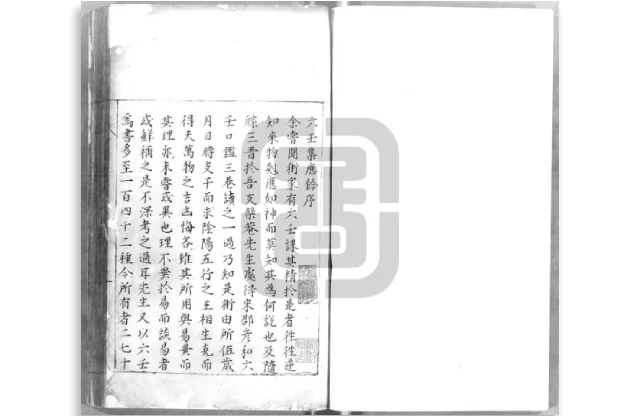 六壬集應鈐序
余嘗聞術家有六壬課其精於是者徃徃逆
知來物尅應如神而莫知其為何說也及隨
三晋於吾友桒菴先生處得宋邵彦和六
壬口鑑三卷讀之一過乃知是術由所值歲
月日時支干而求陰陽五行之王相生克而
得天萬物之吉凶悔吝雖其所用與易異而
其理亦未嘗或異也理不異於易而談易者
或鮮稱之是不深考之過耳先生又以六壬
為書多至一百四十二種今所有者二七十